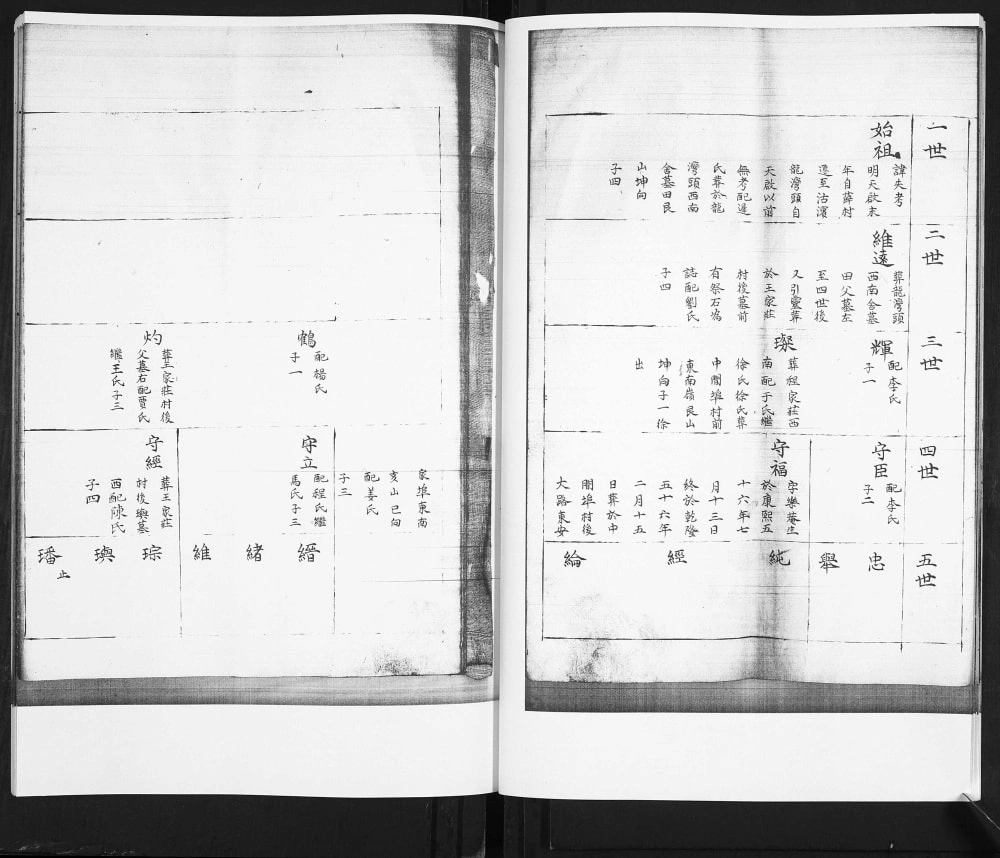 一世
始祖
諱失考
明天啟末
年自薛村
遷至沽濱
龍灣頭自
天啟以前
無考配逄
氏葬於龍
灣頭西南
舍墓田艮
山坤向
子四
二世
維遠
葬龍灣頭
西南舍墓
田父墓左
至四世後
又引靈葬
於王家莊
村後墓前
有祭石為
誌配劉氏
子四
三世
輝
配李氏
子一
璨
葬程家莊西
南配于氏繼
徐氏徐氏葬
中間埠村前
東南嶺艮山
坤向子一徐
出
四世
守臣
配李氏
子二
守福
字樂菴生
於康熙五
十六年七
月十三日
終於乾隆
五十六年
二月十五
日葬於中
間埠村後
大路東安
五世
忠
舉
純
經
綸
家埠東南
亥山巳向
配姜氏
子三
鶴
配楊氏
子一
灼
葬王家莊村後
父墓右配賈氏
繼王氏子三
守立
配程氏繼
馬氏子三
守經
葬王家莊
村後塋墓
西配陳氏
子四
縉
緒
維
琮
璵
璠
止